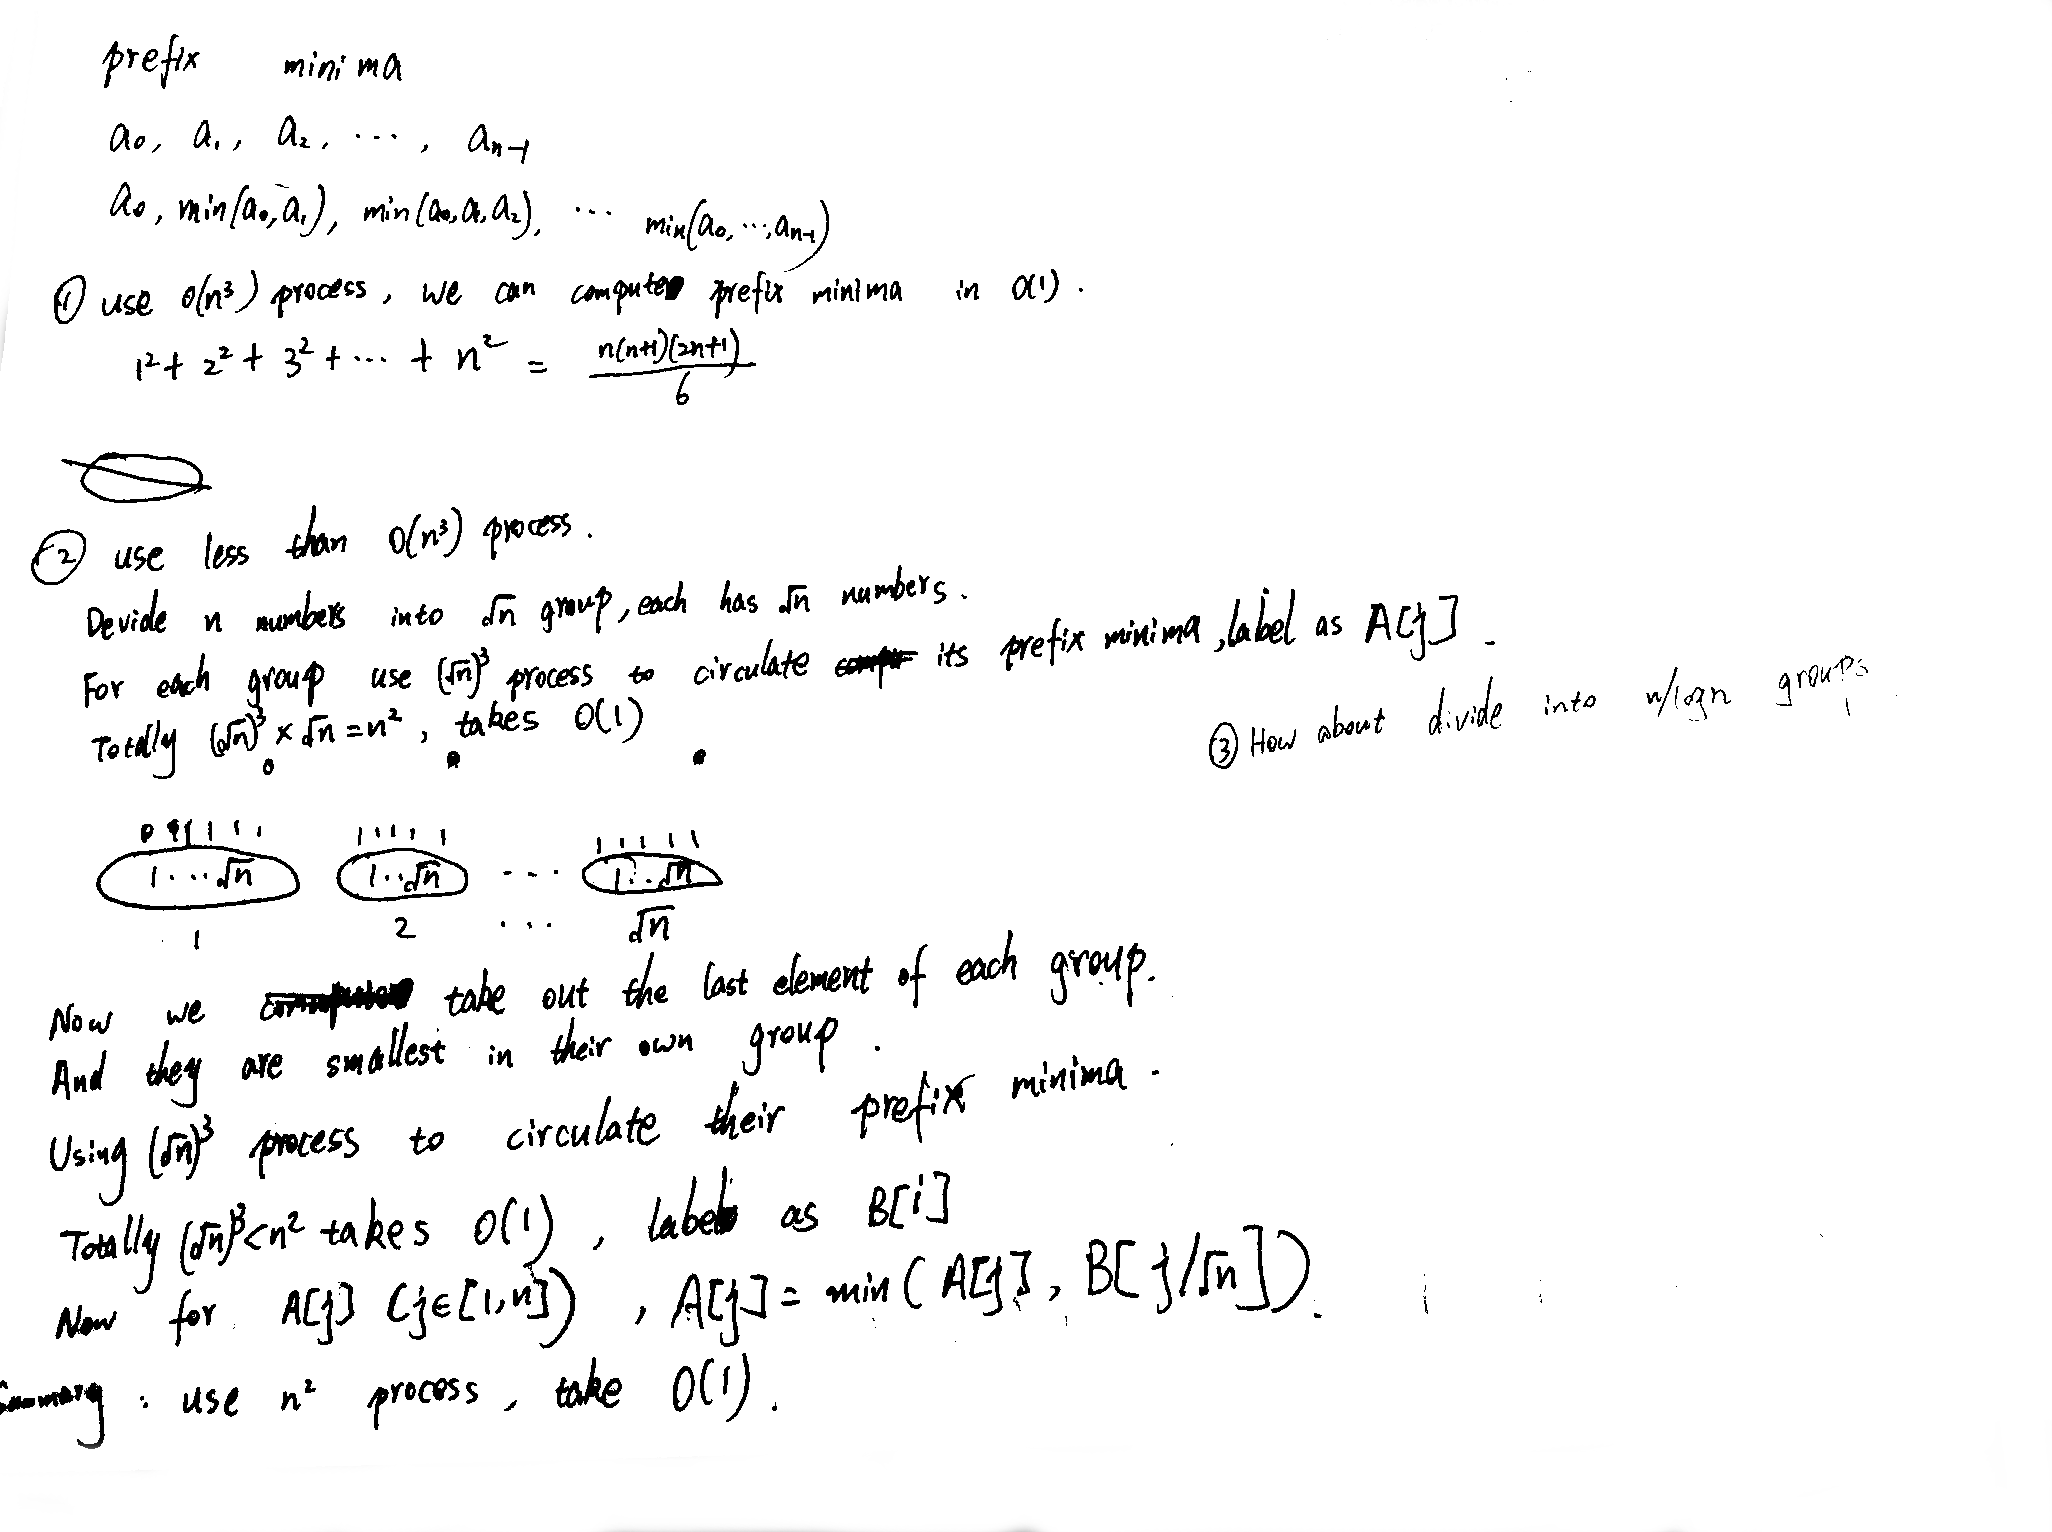 prefix minima
a₀, a₁, a₂, ..., aₙ₋₁
a₀, min(a₀,a₁), min(a₀,a₁,a₂), ... min(a₀, ...,aₙ₋₁)
① use O(n³) process, we can compute prefix minima in O(1).
1² + 2² + 3² + ... + n² = n(n+1)(2n+1)/6
② use less than O(n³) process.
Devide n numbers into √n group, each has √n numbers.
For each group use (√n)³ process to circulate its prefix minima, label as A[j].
Totally (√n)³ × √n = n², takes O(1)
③ How about divide into n/logn groups
1...√n 1..√n ... 1..√n
1 2 ... √n
Now we take out the last element of each group.
And they are smallest in their own group.
Using (√n)³ process to circulate their prefix minima.
Totally (√n)³<n² takes O(1), label as B[i]
Now for A[j] (j∈[1,n]), A[j] = min(A[j], B[j/√n]).
Summary: use n² process, take O(1).